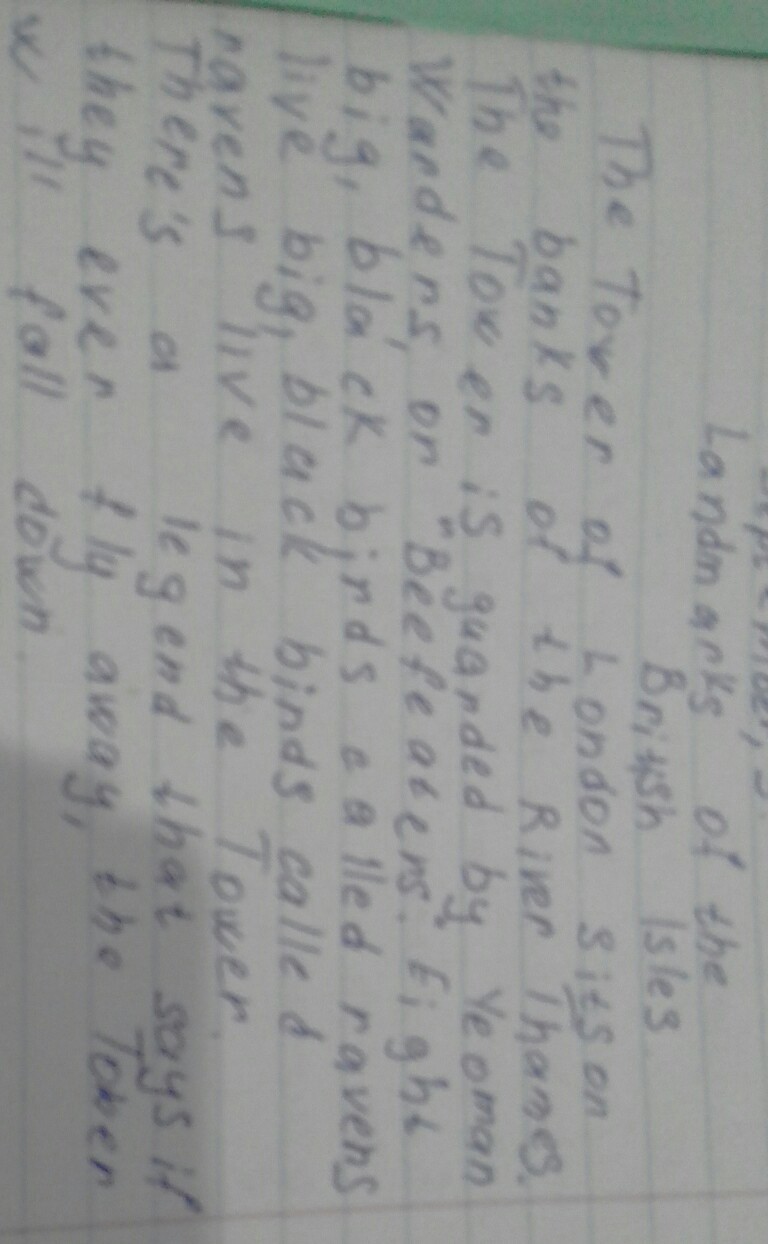 Landmarks of the
British Isles
The Tower of London sits on
the banks of the River Thames.
The Tower is guarded by Yeoman
Warders, or "Beefeaters." Eight
big, black birds called ravens
live big, black birds called
ravens live in the Tower.
There's a legend that says if
they ever fly away, the Tower
will fall down.